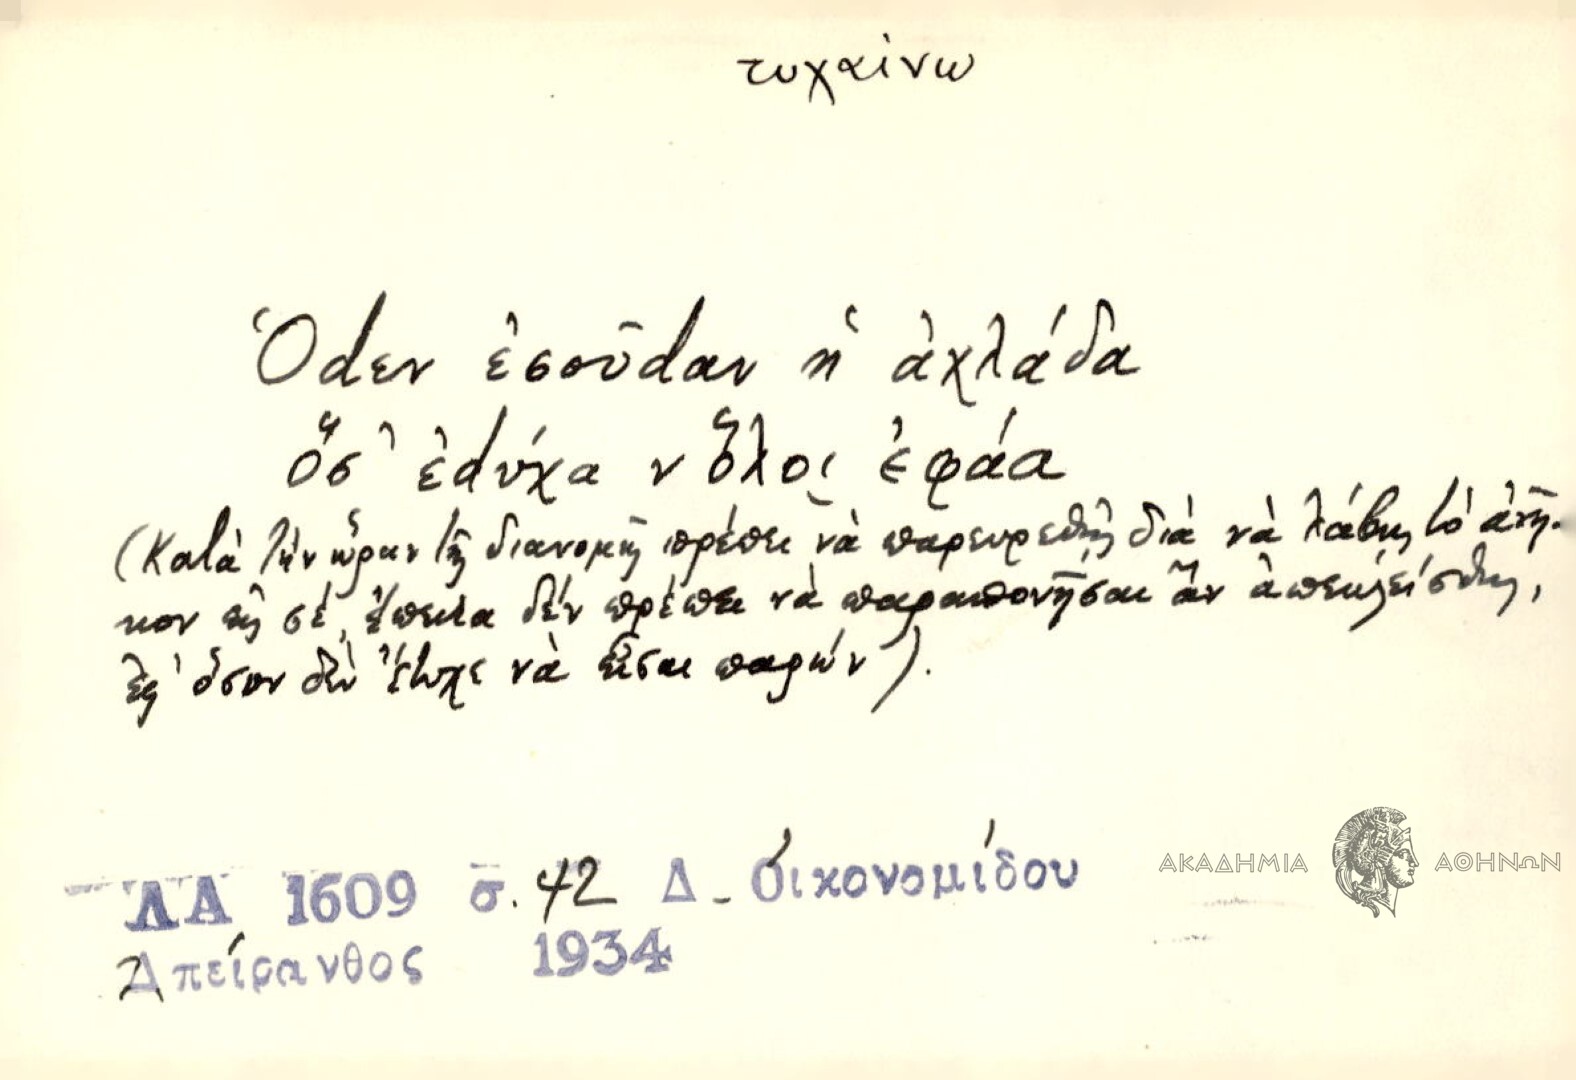 τυχαίνω
Ὁdεν ἐσοῦdαν ἡ ἀχλάδα
ὅσ' ἐdύχα ν ὅλοι ἐφάα
(Κατὰ τὴν ὥραν τῆς διανομῆς πρέπει νὰ παρευρεθῇς διὰ νὰ λάβῃς τὸ ἀνῆ-
κον εἰς σέ, ἔπειτα δὲν πρέπει νὰ παραπονῆσαι ἂν ἀπεκλείσθης,
ἐφ' ὅσον δὲν ἔτυχε νὰ εἶσαι παρών).
ΛΑ 1609 σ. 42 Δ. Οἰκονομίδου
Ἀπείρανθος 1934
ΑΚΑΔΗΜΙΑ ΑΘΗΝΩΝ